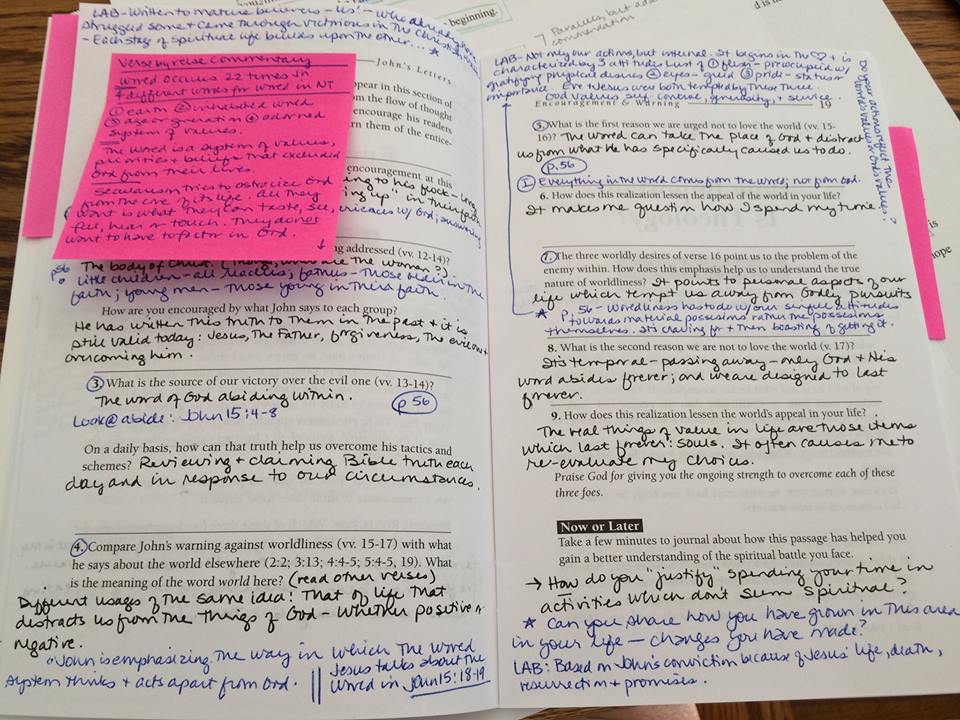 beginning.
Parallels, but
commendation
LAB-Written to mature believers - "us" - who already
struggled some & came through victorious in the Christian
- Each stage of spiritual life builds upon the other... ★
John's Letters
Verse by verse commentary
World occurs 22 times in
4 different words for World in NT
① earth ② inhabited world
③ age or generation ④ adorned
system of values.
The world is a system of values,
priorities & beliefs that excluded
God from their lives.
Secularism tries to ostracize God
from the core of its life. All they
want is what they can taste, see,
feel, hear or touch. They do not
want to have to factor in God.
↓
appear in this section of
om the flow of thought
encourage his readers
rn them of the entice-
encouragement at this
ng to his flock - living
ing up" in their faith
God, answering
ng addressed (vv. 12-14)?
The body of Christ.
p56
• Little children - all readers; fathers - those older in the
faith; young men - those young in their faith.
How are you encouraged by what John says to each group?
He has written this truth to them in the past & it is
still valid today: Jesus, The Father, forgiveness, the evil one &
overcoming him.
3. What is the source of our victory over the evil one (vv. 13-14)?
The word of God abiding within.
p.56
Look @ abide: John 15:4-8
On a daily basis, how can that truth help us overcome his tactics and
schemes? Reviewing & claiming Bible truth each
day and in response to our circumstances.
4. Compare John's warning against worldliness (vv. 15-17) with what
he says about the world elsewhere (2:2; 3:13; 4:4-5; 5:4-5, 19). What
is the meaning of the word world here? (read other verses)
Different usages of the same idea: That of life that
distracts us from the things of God - whether positive or
negative.
• John is emphasizing the way in which the world
system thinks & acts apart from God.
Jesus talks about the
world in John 15:18-19
LAB - Not only our actions, but internal. It begins in the ♡ & is
characterized by 3 attitudes lust of ① flesh - preoccupied w/
gratifying physical desires ② eyes - greed ③ pride - status or
importance Eve & Jesus were both tempted by these three.
God values self-control, generosity, & service.
Do your actions reflect the world's values or God's values?
Encouragement & Warning
19
5. What is the first reason we are urged not to love the world (vv. 15-
16)? The world can take the place of God & distract
us from what He has specifically called us to do.
p.56
① Everything in the world comes from the world; not from God.
6. How does this realization lessen the appeal of the world in your life?
It makes me question how I spend my time.
7. The three worldly desires of verse 16 point us to the problem of the
enemy within. How does this emphasis help us to understand the true
nature of worldliness? It points to personal aspects of our
life which tempt us away from Godly pursuits
★ p 56 - Worldliness has to do w/ our sinful attitudes
towards material possessions rather the possessions
themselves. It's craving for & then boasting of getting it.
8. What is the second reason we are not to love the world (v. 17)?
It's temporal - passing away - only God & His
word abides forever; and we are designed to last
forever.
9. How does this realization lessen the world's appeal in your life?
The real things of value in life are those items
which last forever: souls. It often causes me to
re-evaluate my choices.
Praise God for giving you the ongoing strength to overcome each of these
three foes.
Now or Later
Take a few minutes to journal about how this passage has helped you
gain a better understanding of the spiritual battle you face.
→ How do you "justify" spending your time in
activities which don't seem spiritual?
★ Can you share how you have grown in this area
in your life - changes you have made?
LAB: Based on John's conviction because of Jesus' life, death,
resurrection & promises.
is
hope